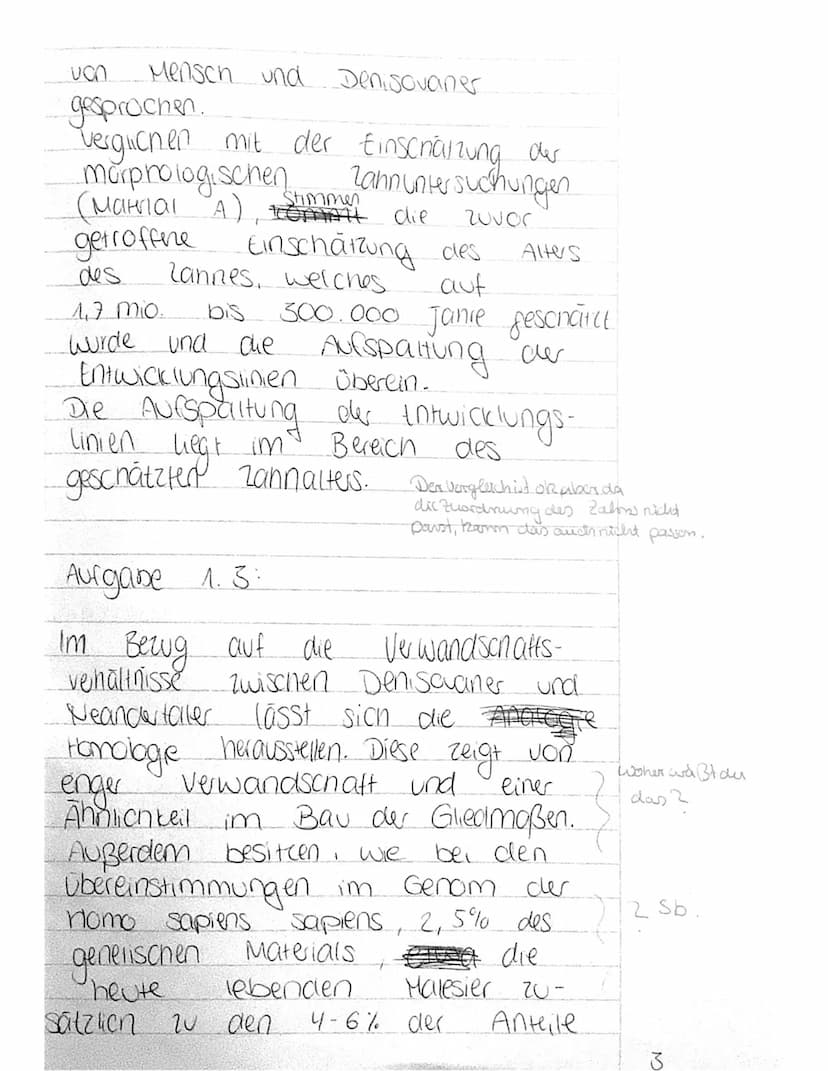 von Mensch und Denisovaner
gesprochen.
Verglichen mit der Einschätzung der
morphologischen Zahnuntersuchungen
(Material A), stimmen die zuvor
getroffene Einschätzung des Alters
des Zahnes, welches auf
1,7 mio. bis 300.000 Jahre geschätzt
wurde und die Aufspaltung der
Entwicklungslinien überein.
Die Aufspaltung der Entwicklungs-
linien liegt im Bereich des
geschätzten Zahnalters.
Der Vergleich ist ok aber da
die Zuordnung des Zahns nicht
passt, kann das auch nicht passen.
Aufgabe 1.3:
Im Bezug auf die Verwandschafts-
verhältnisse zwischen Denisovaner und
Neandertaler lässt sich die
Homologie herausstellen. Diese zeigt von
enger Verwandschaft und einer
Ähnlichkeit im Bau der Gliedmaßen.
woher weißt du
das?
Außerdem besitzen, wie bei den
Übereinstimmungen im Genom der
Homo sapiens sapiens, 2,5% des
? Sb.
genetischen Materials, die
heute lebenden Malesier zu-
sätzlich zu den 4-6% der Anteile
3